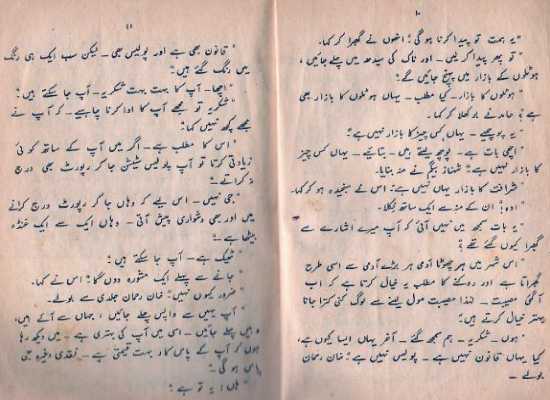 ۱۰
"یہ ہمت تو پیدا کرنا ہو گی؟" انھوں نے گھبرا کر کہا۔
"تو پھر پیدا کر لیں ۔ اور ناک کی سیدھ میں چلے جائیں،
ہوٹلوں کے بازار میں پہنچ جائیں گے"
"ہوٹلوں کا بازار ۔ کیا مطلب ۔ یہاں ہوٹلوں کا بازار بھی
ہے؟" حامد نے بوکھلا کر کہا۔
"یہ پوچھیے ۔ یہاں کس چیز کا بازار نہیں ہے"
"اچھی بات ہے ۔ پوچھ لیتے ہیں ۔ بتائیے ۔ یہاں کس چیز
کا بازار نہیں ہے؟" شہناز بیگم نے منہ بنایا۔
"شرافت کا بازار یہاں نہیں ہے" اس نے سنجیدہ ہو کر کہا۔
"اوہ!" ان کے منہ سے ایک ساتھ نکلا۔
"یہ بات سمجھ میں نہیں آئی کہ آپ میرے اشارے سے
گھبرا کیوں گئے تھے؟"
"اس شہر میں ہر چھوٹا آدمی ہر بڑے آدمی سے اسی طرح
گھبراتا ہے اور روکنے کا مطلب یہ خیال کرتا ہے کہ اب
آئی مصیبت ۔ لہذا مصیبت مول لینے سے لوگ کنی کترا جانا
بہتر خیال کرتے ہیں"
"ہوں ۔ شکریہ ۔ ہم سمجھ گئے ۔ آخر یہاں ایسا کیوں ہے،
کیا یہاں قانون نہیں ہے ۔ پولیس نہیں ہے؟" خان رحمان
بولے ۔
۱۱
"قانون بھی ہے اور پولیس بھی ۔ لیکن سب ایک ہی رنگ
میں رنگ گئے ہیں"
"اچھا ۔ آپ کا بہت بہت شکریہ ۔ آپ جا سکتے ہیں"
"شکریہ تو مجھے آپ کا ادا کرنا چاہیے ۔ کہ آپ نے
مجھے کچھ نہیں کہا"
"اس کا مطلب ہے ۔ اگر میں آپ کے ساتھ کوئی
زیادتی کرتا تو آپ پولیس سٹیشن جا کر رپورٹ بھی درج
نہ کراتے"
"جی نہیں ۔ اس لیے کہ وہاں جا کر رپورٹ درج کرانے
میں اور بھی دشواری پیش آتی ۔ وہاں ایک سے ایک غنڈہ
بیٹھا ہے"
"ٹھیک ہے ۔ آپ جا سکتے ہیں"
"جانے سے پہلے ایک مشورہ دوں گا" اس نے کہا۔
"ضرور کیوں نہیں" خان رحمان جلدی سے بولے۔
"آپ یہیں سے واپس چلے جائیں، جہاں سے آئے ہیں،
وہیں چلے جائیں ۔ اسی میں آپ کی بہتری ہے ۔ میں دیکھ رہا
ہوں کہ آپ کے پاس کار بہت قیمتی ہے ۔ نقدی وغیرہ بھی
پاس ہو گی"
"ہاں! یہ تو ہے"